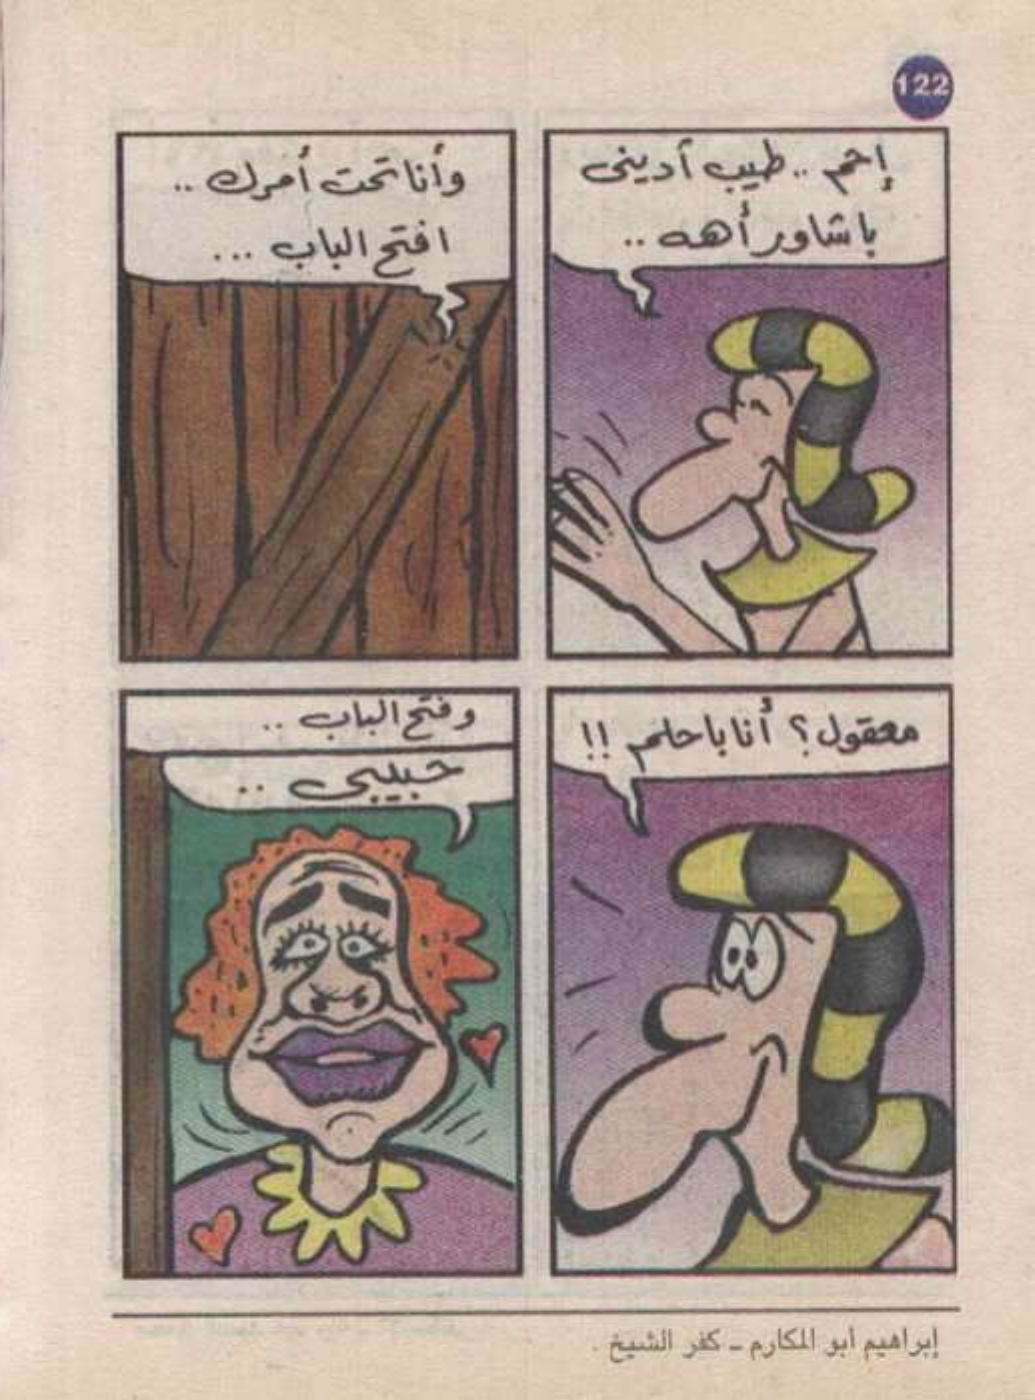 122
إحم .. طيب أدينى
باشاور أهه ..
وأنا تحت أمرك ..
افتح الباب ...
معقول؟ أنا باحلم !!
وفتح الباب ..
حبيبى ..
إبراهيم أبو المكارم - كفر الشيخ .